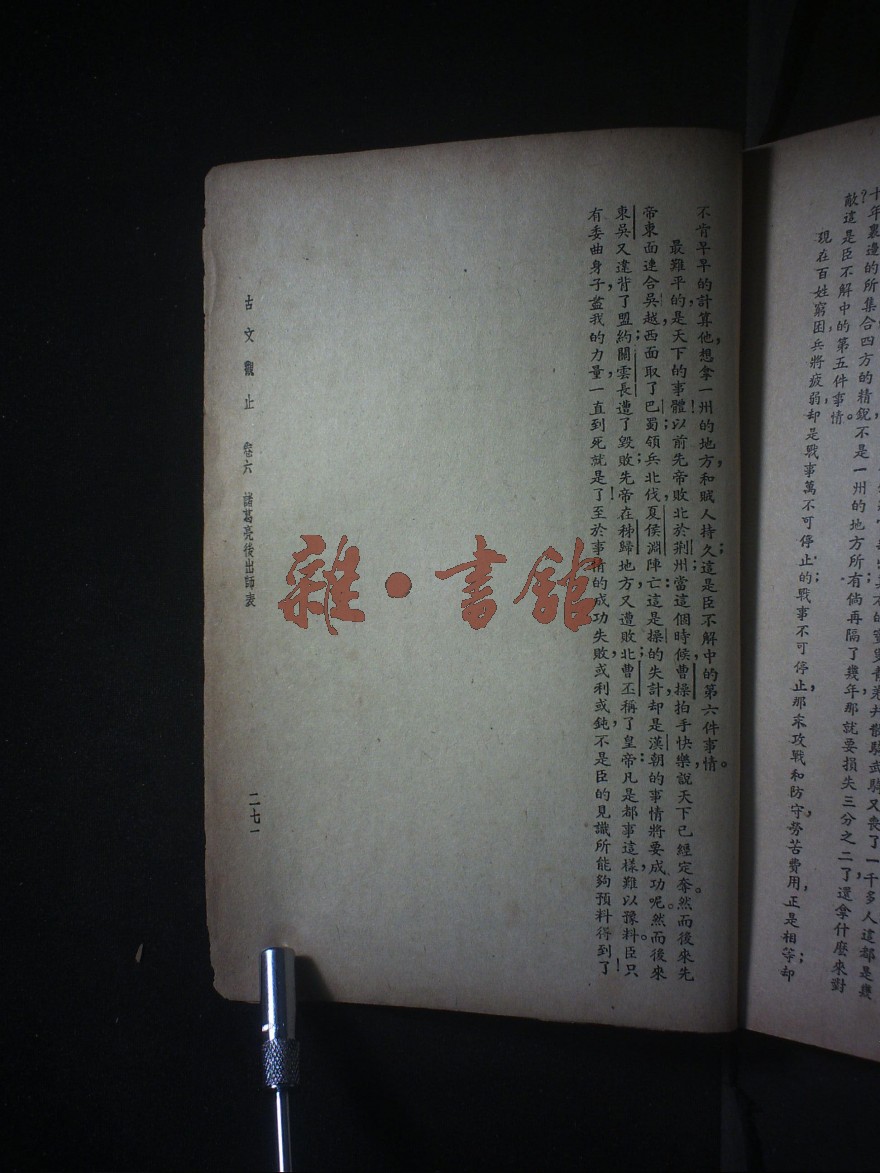 十年裏邊的所集合四方的精銳，不是一州的地方所有，倘再隔了幾年，那就要損失三分之二了，還拿什麼來對
敵？這是臣不解中的第五件事情。
現在百姓窮困，兵將疲弱，却是戰事萬不可停止的；戰事不可停止，那末攻戰和防守，勞苦費用，正是相等；却
不肯早早的計算他，想拿一州的地方，和賊人持久；這是臣不解中的第六件事情。
最難平的，是天下的事體！以前先帝敗北於荆州，當這個時候，曹操拍手快樂，說天下已經定奪。然而後來先
帝東面連合吳越，西面取了巴蜀；領兵北伐，夏侯淵陣亡；這是操的失計，却是漢朝的事情將要成功呢。然而後來
東吳又違背了盟約；關雲長遭了毀敗；先帝在秭歸地方，又遭敗北；曹丕稱了皇帝；凡是都事這樣，難以豫料。臣只
有委曲身子，盡我的力量，一直到死就是了！至於事情的成功失敗，或利或鈍，不是臣的見識所能夠預料得到了！
古文觀止　卷六　諸葛亮後出師表
二七一
雜·書館